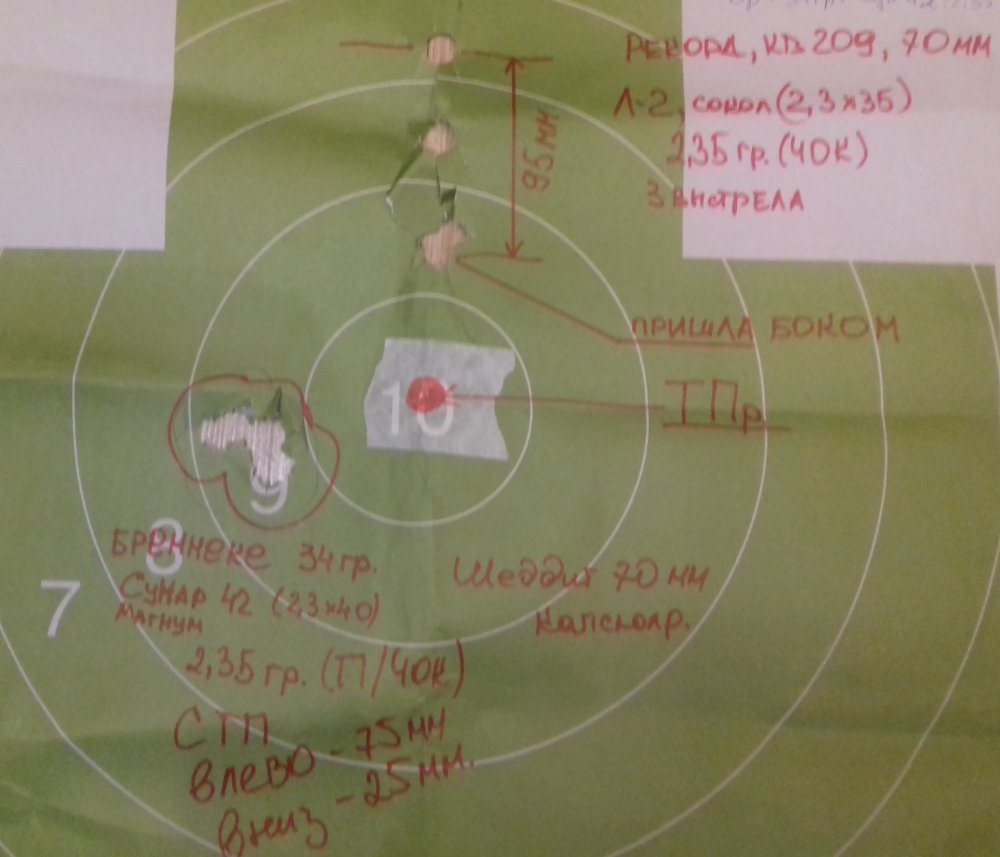 РЕКОРД, КВ 209, 70 ММ
Л-2, СОКОЛ (2,3×35)
2,35 гр. (40К)
3 ВЫСТРЕЛА
95 ММ
ПРИШЛА БОКОМ
10
ТПр
9
8
7
БРЕННЕКЕ 34 гр.
СУНАР 42 (2,3×40)
МАГНУМ
2,35 гр. (П/40К)
Шеддит 70 мм
Капсюляр.
СТП
влево - 75 мм
вниз - 25 мм.